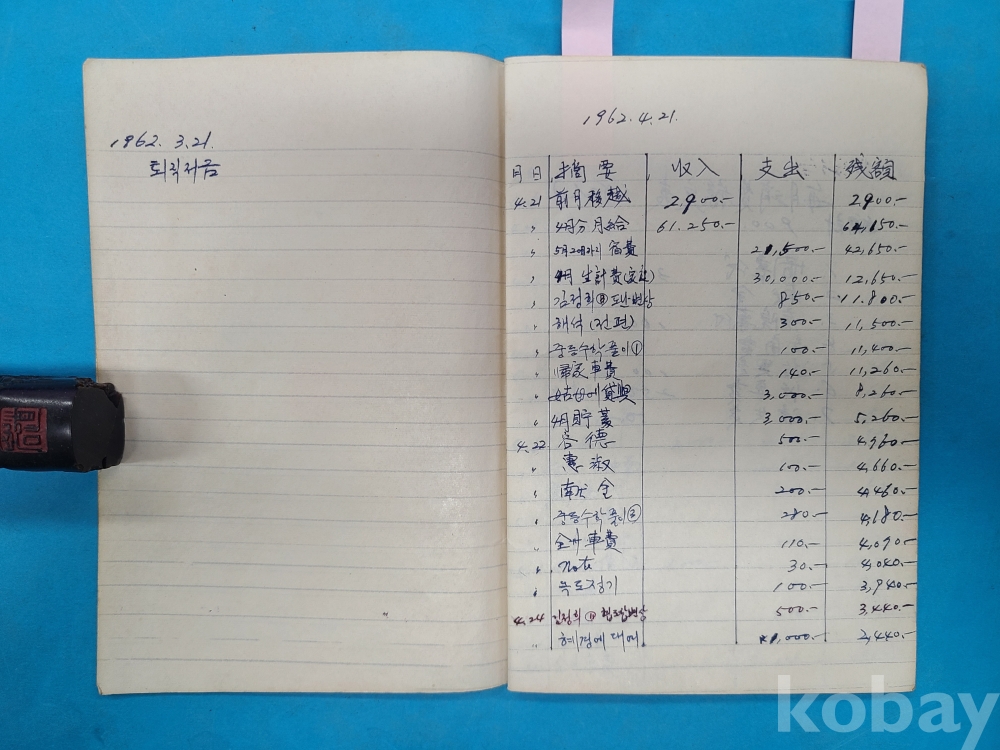 1962. 3.21.
퇴직저금
1962.4.21.
月日 摘要 收入 支出 残額
4.21 前月移越 2900.- 2900.-
〃 4月分月給 61.250.- 64,150.-
〃 宿費 21,500.- 42,650.-
〃 4月 生計費 30,000.- 12,650.-
〃 김정희 도난변상 850.- 11.800.-
〃 해석(전편) 300.- 11,500.-
〃 중등수학풀이① 100.- 11,400.-
〃 帰家車費 140.- 11,260.-
〃 姑母에 貸與 3,000.- 8,260.-
〃 4月貯蓄 3,000.- 5,260.-
4.22 容德 500.- 4,760.-
〃 惠淑 100.- 4,660.-
〃 献金 200.- 4,460.-
〃 중등수학풀이② 280.- 4,180.-
〃 車費 110.- 4,070.-
〃 note 30.- 4,040.-
〃 100.- 3,940.-
4.24 김정희 500.- 3,440.-
〃 혜경에 대여 1,000.- 2,440.-
kobay